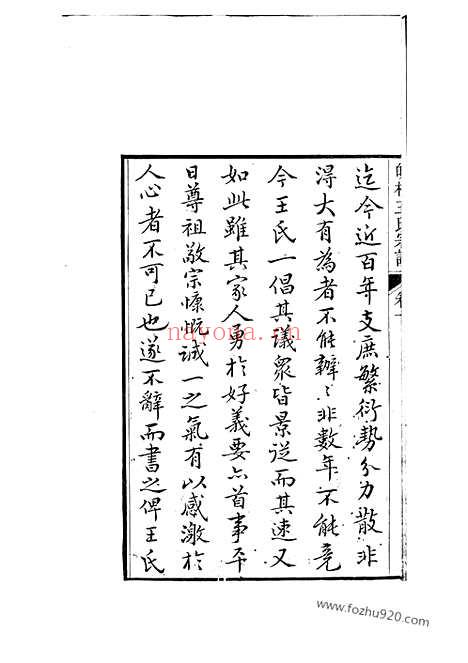 迄今近百年支庶繁衍勢分力散非
得大有為者不能辦辦非數年不能竟
今王氏一倡其議眾皆景從而其速又
如此雖其家人勇於好義要亦首事平
日尊祖敬宗慷慨誠一之氣有以感激於
人心者不可已也遂不辭而書之俾王氏
王氏宗譜
卷一
nayona.cn
www.fozhu920.com